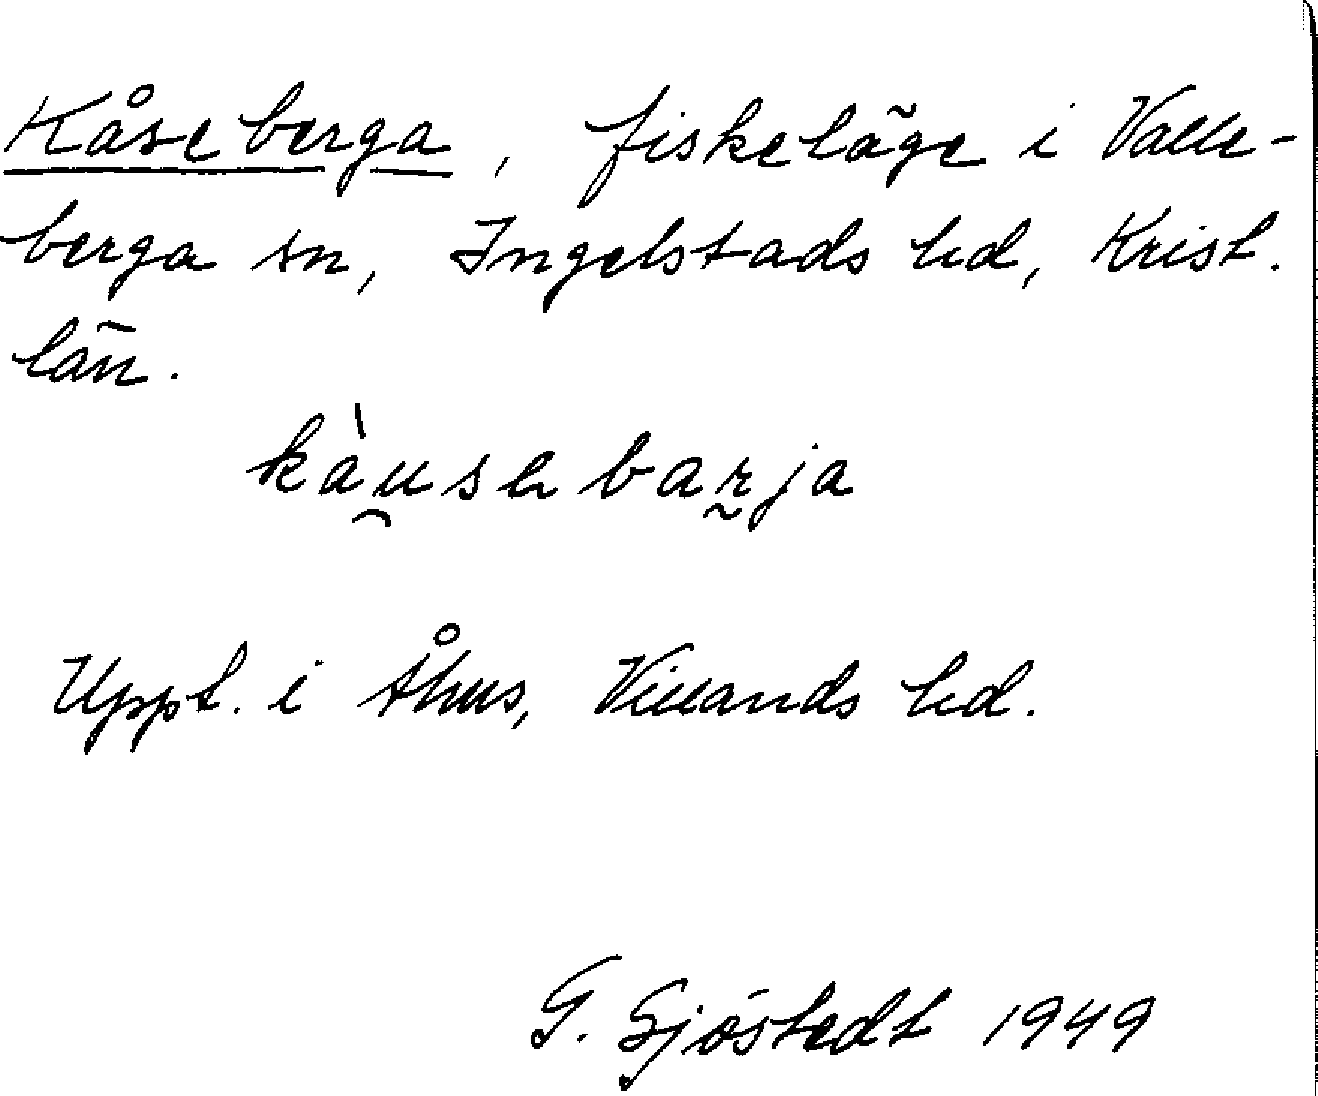 Kåseberga, fiskeläge i Valle-
berga sn, Ingelstads hd, Krist.
län.
kàu̯sebar̰ja
Uppt. i Åhus, Villands hd.
G. Sjöstedt 1949